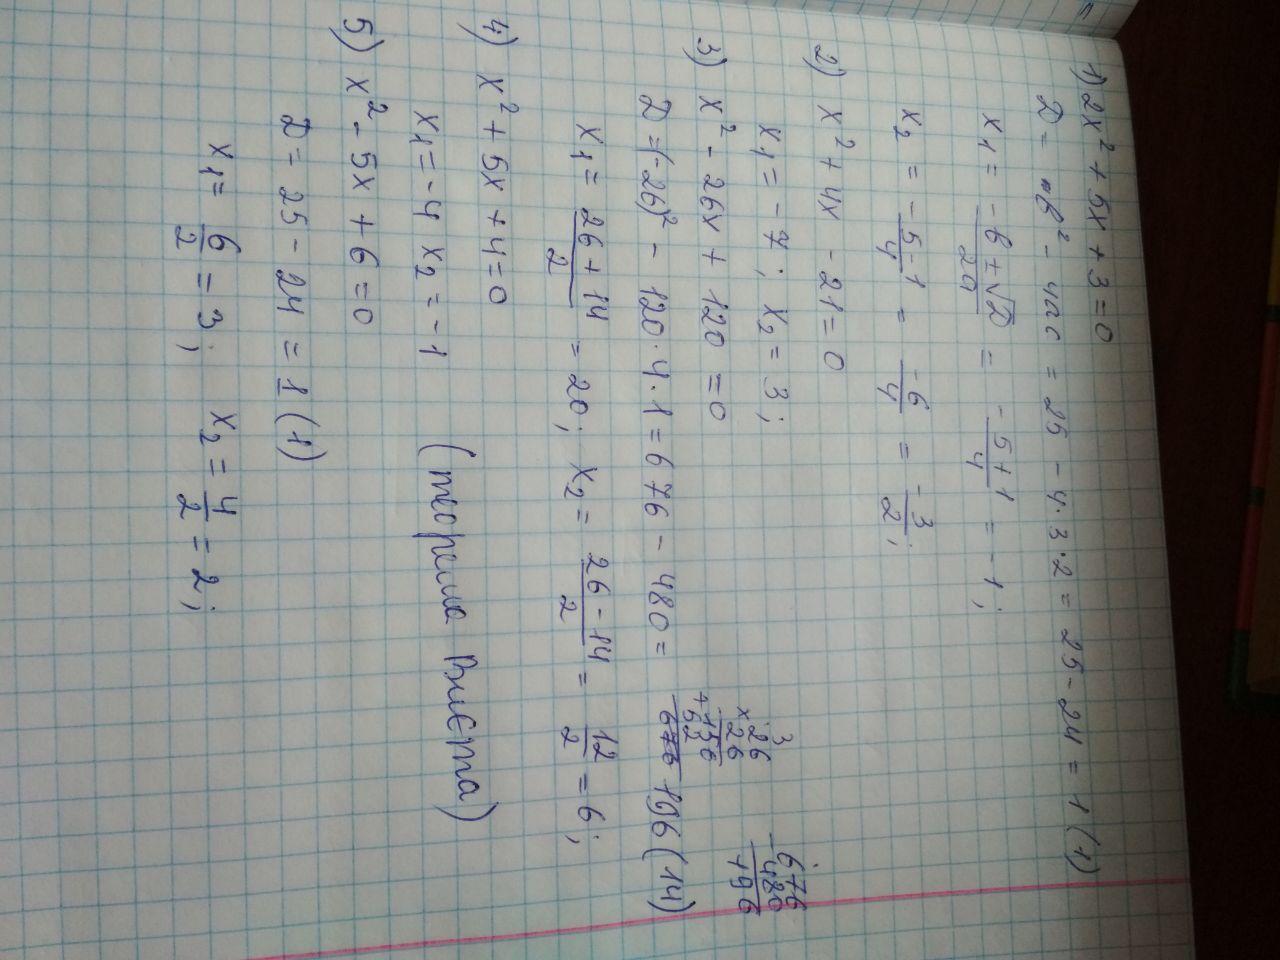 1) 2x² + 5x + 3 = 0
D = b² - 4ac = 25 - 4·3·2 = 25 - 24 = 1 (1)
x₁ = (-b ± √D)/2a = (-5+1)/4 = -1;
x₂ = (-5-1)/4 = -6/4 = -3/2;
2) x² + 4x - 21 = 0
x₁ = -7; x₂ = 3;
3) x² - 26x + 120 = 0
D = (-26)² - 120·4·1 = 676 - 480 = 196 (14)
3
26
× 26
156
+ 52
676
676
- 480
196
x₁ = (26 + 14)/2 = 20; x₂ = (26 - 14)/2 = 12/2 = 6;
4) x² + 5x + 4 = 0
x₁ = -4 x₂ = -1 (теорема Виета)
5) x² - 5x + 6 = 0
D = 25 - 24 = 1 (1)
x₁ = 6/2 = 3; x₂ = 4/2 = 2;